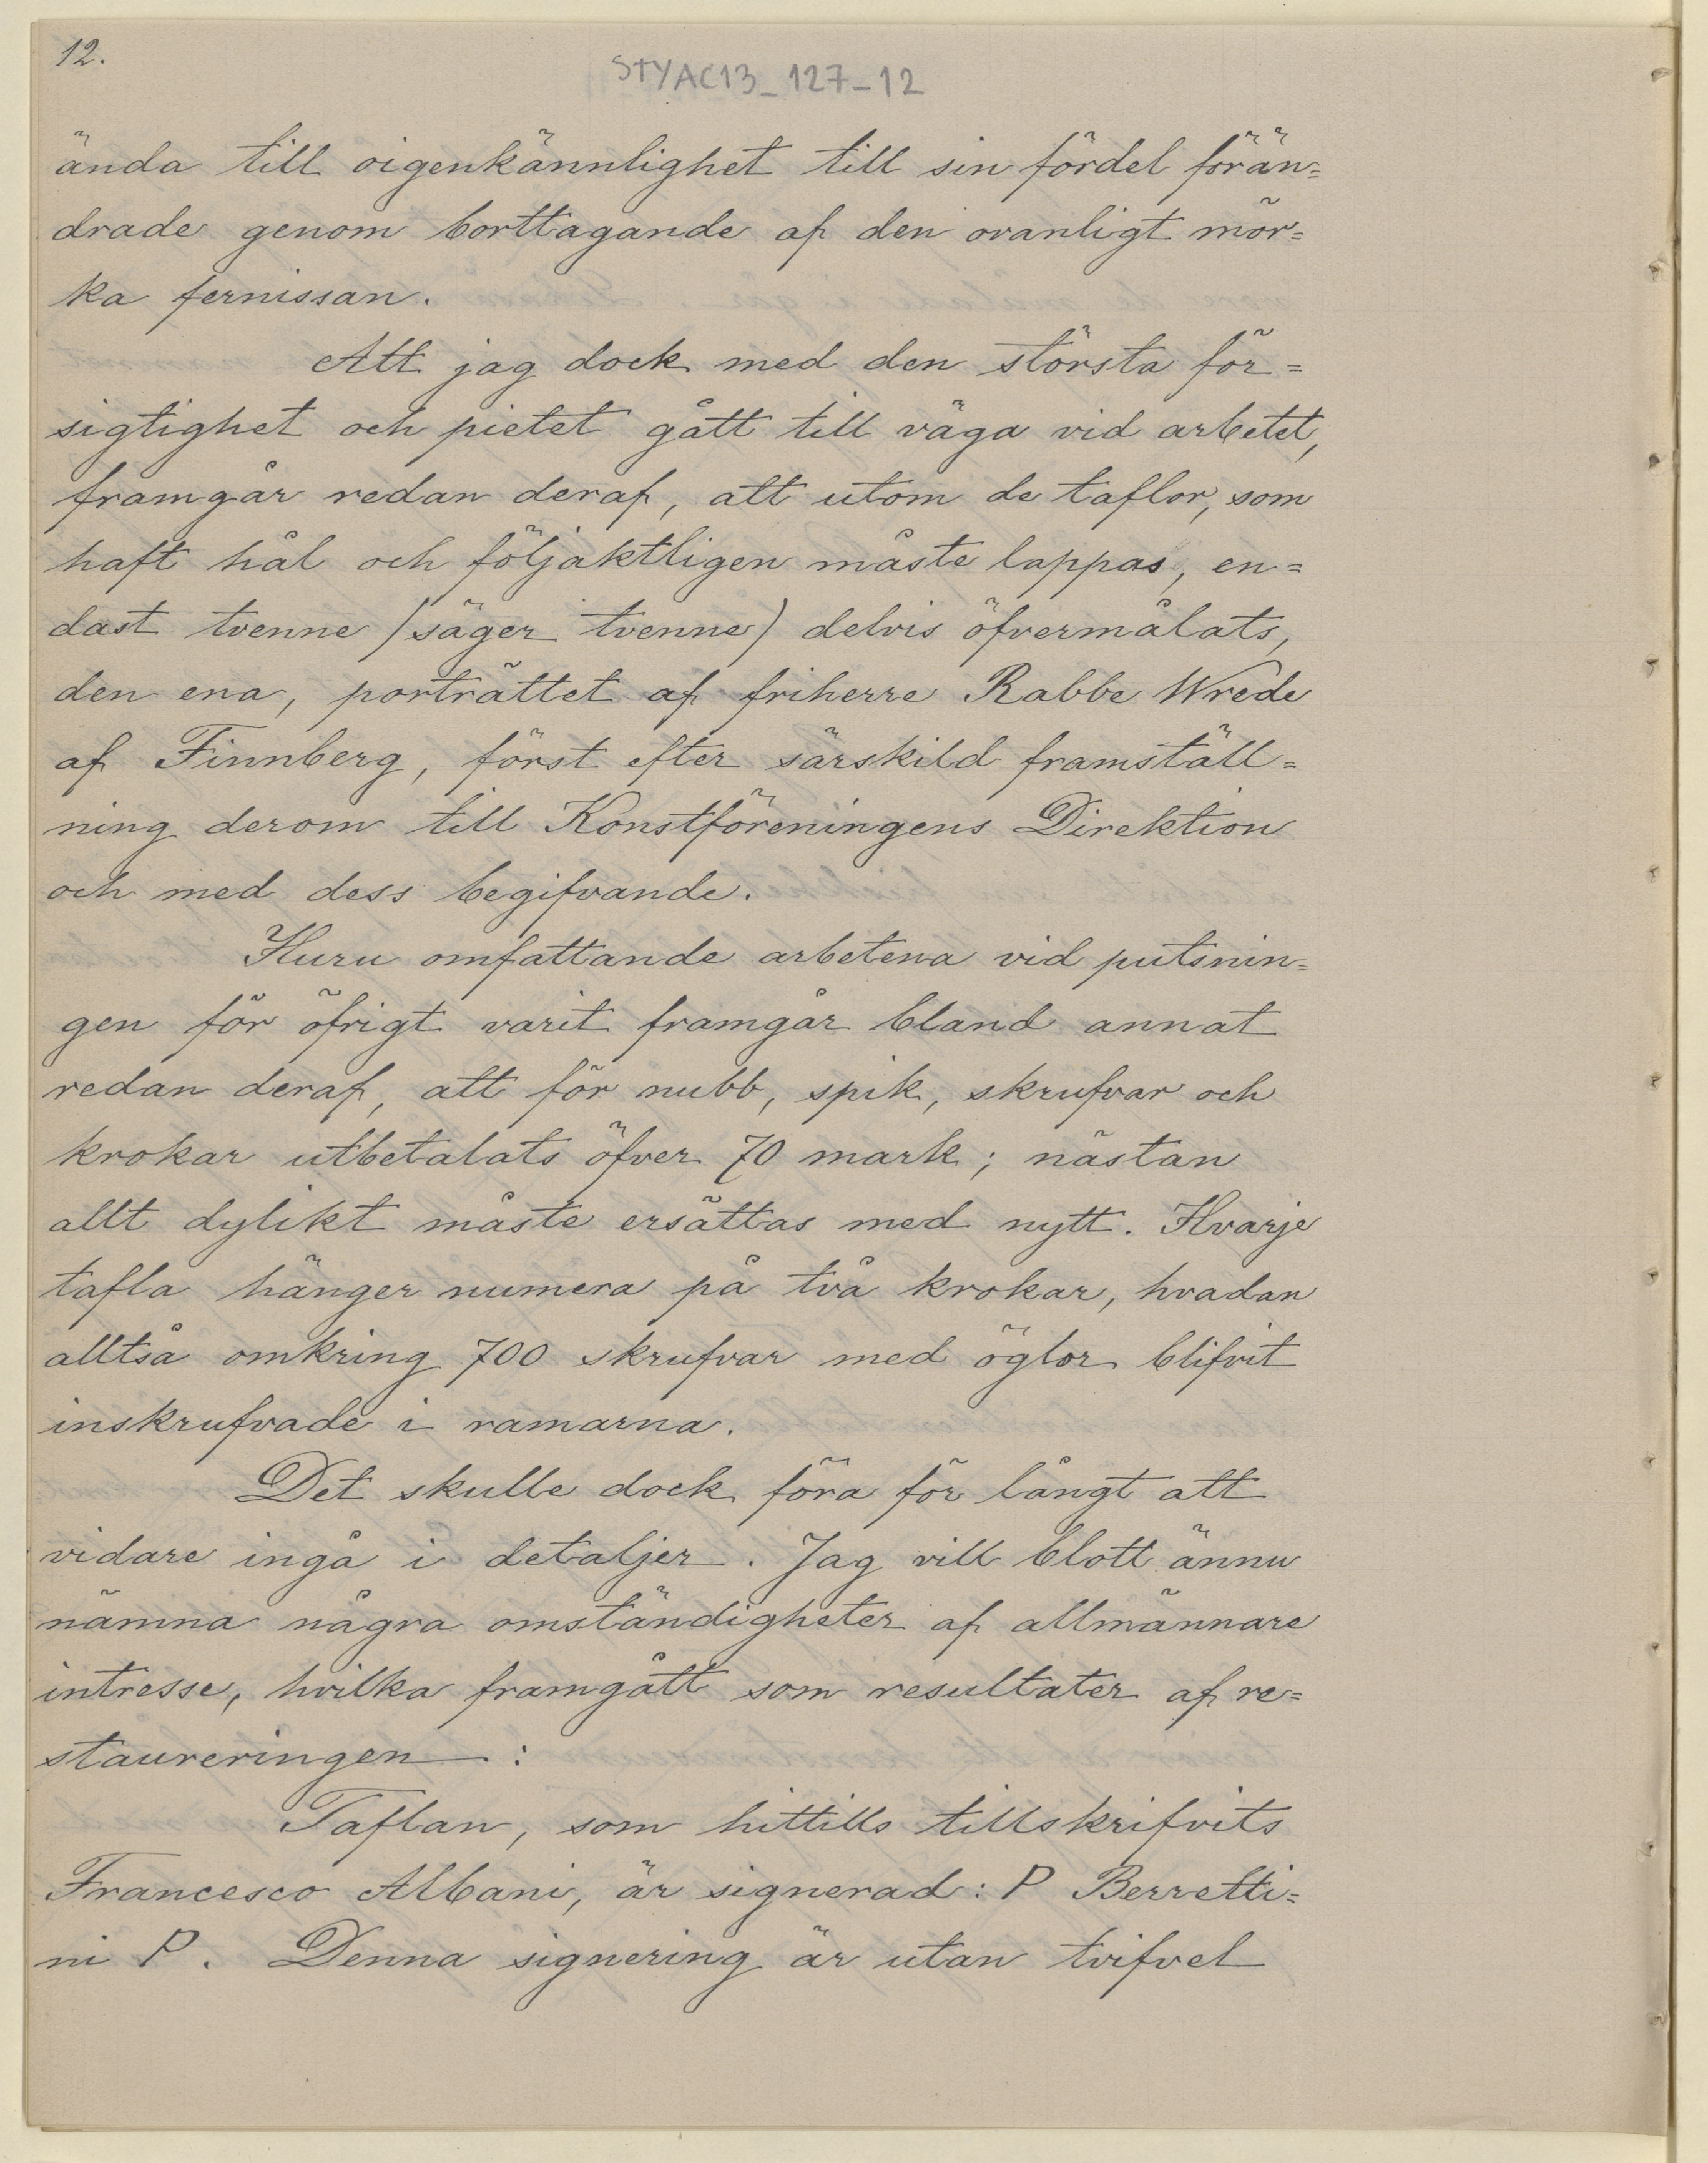 12.
STYAC13_127-12
ända till oigenkännlighet till sin fördel förän=
drade genom borttagande af den ovanligt mör=
ka fernissan.
Att jag dock med den största för=
sigtighet och pietet gått till väga vid arbetet,
framgår redan deraf, att utom de taflor, som
haft hål och följaktligen måste lappas, en=
dast tvenne (säger tvenne) delvis öfvermålats,
den ena, porträttet af friherre Rabbe Wrede
af Finnberg, först efter särskild framställ=
ning derom till Konstföreningens Direktion
och med dess begifvande.
Huru omfattande arbetena vid putsnin=
gen för öfrigt varit framgår bland annat
redan deraf, att för nubb, spik, skrufvar och
krokar utbetalats öfver 70 mark; nästan
allt dylikt måste ersättas med nytt. Hvarje
tafla hänger numera på två krokar, hvadan
alltså omkring 700 skrufvar med öglor blifvit
inskrufvade i ramarna.
Det skulle dock föra för långt att
vidare ingå i detaljer. Jag vill blott ännu
nämna några omständigheter af allmännare
intresse, hvilka framgått som resultater af re=
staureringen:
Taflan, som hittills tillskrifvits
Francesco Albani, är signerad: P Berretti=
ni P. Denna signering är utan tvifvel